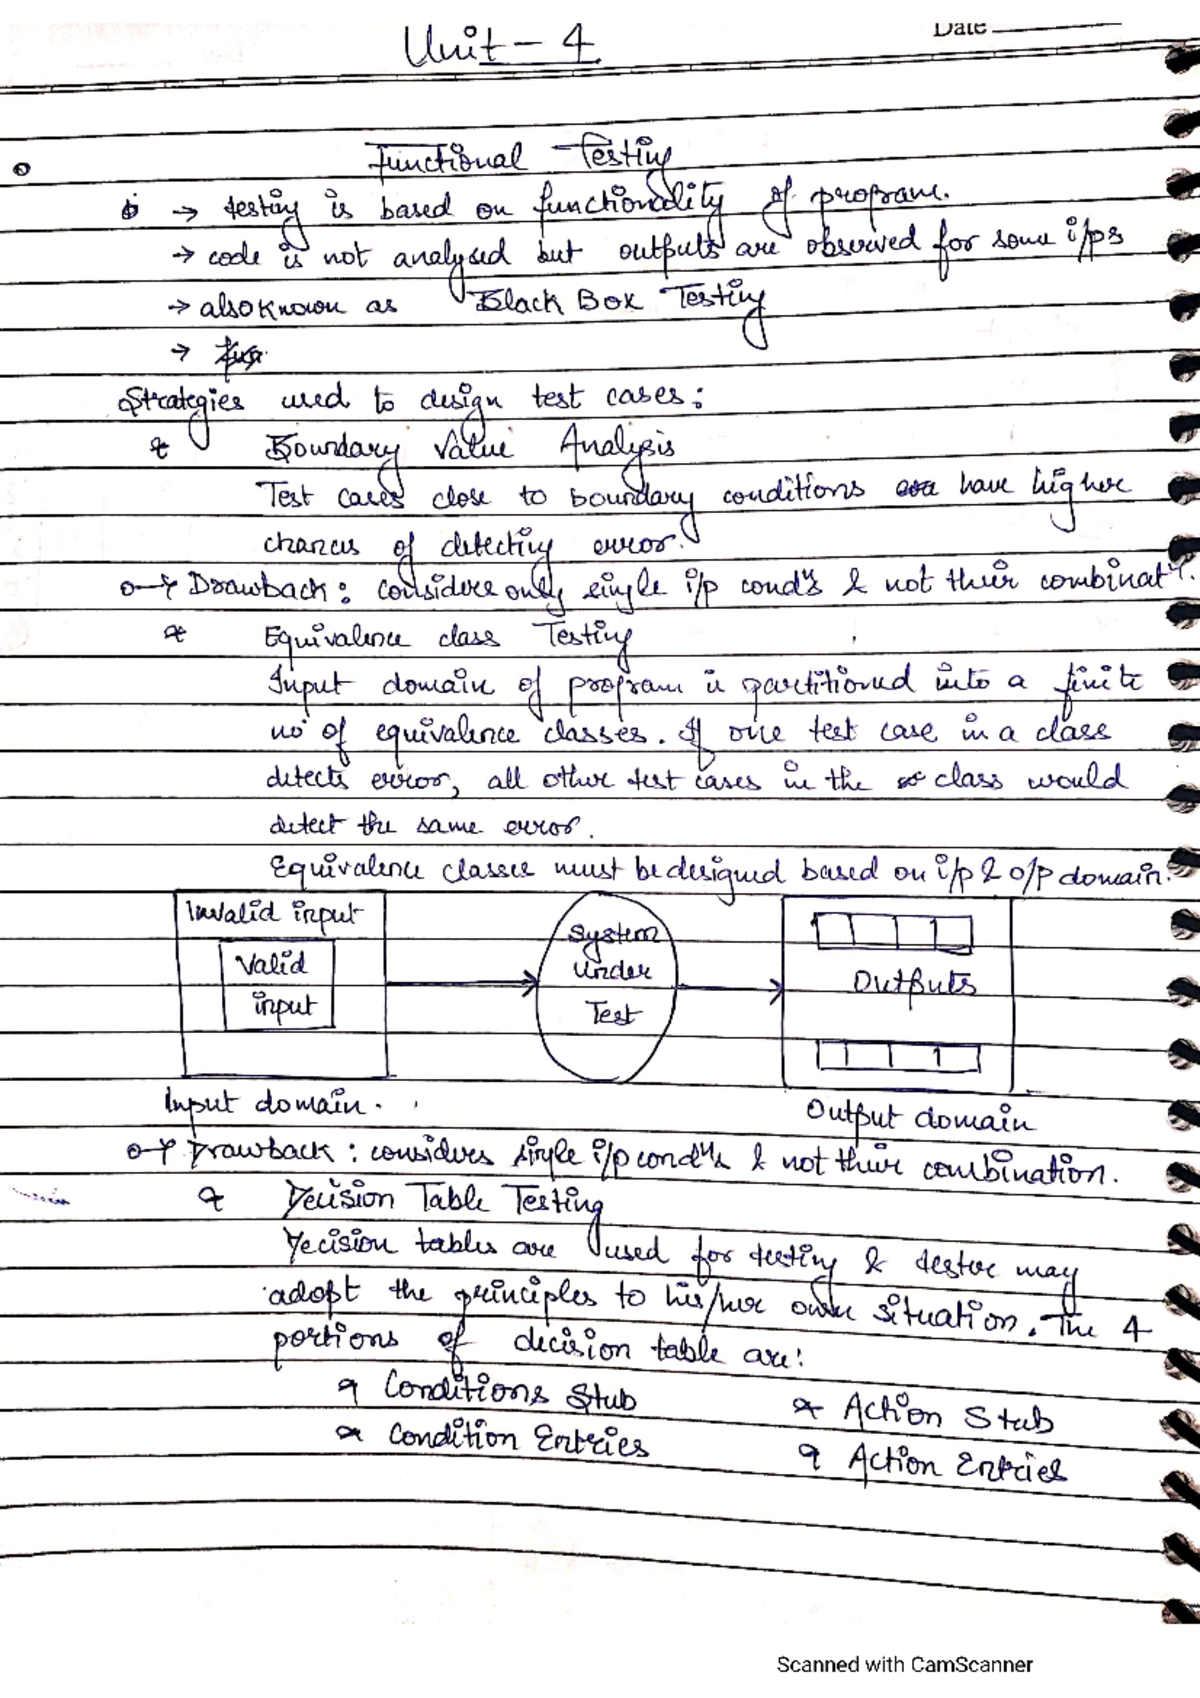 Unit - 4
Date
Functional Testing
→ testing is based on functionality of program.
→ code is not analysed but outputs are observed for some i/ps
→ also known as Black Box Testing
→
Strategies used to design test cases:
* Boundary Value Analysis
Test cases close to boundary conditions have higher
chances of detecting error.
Drawback: considers only single i/p condns & not their combinatn.
* Equivalence class Testing
Input domain of program is partitioned into a finite
no of equivalence classes. If one test case in a class
detects error, all other test cases in the class would
detect the same error.
Equivalence classes must be designed based on i/p & o/p domain.
Invalid input
Valid
input
System
Under
Test
Outputs
Input domain.
Output domain
Drawback: considers single i/p condns & not their combination.
* Decision Table Testing
Decision tables are used for testing & tester may
adopt the principles to his/her own situation. The 4
portions of decision table are:
* Conditions Stub
* Action Stub
* Condition Entries
* Action Entries
Scanned with CamScanner